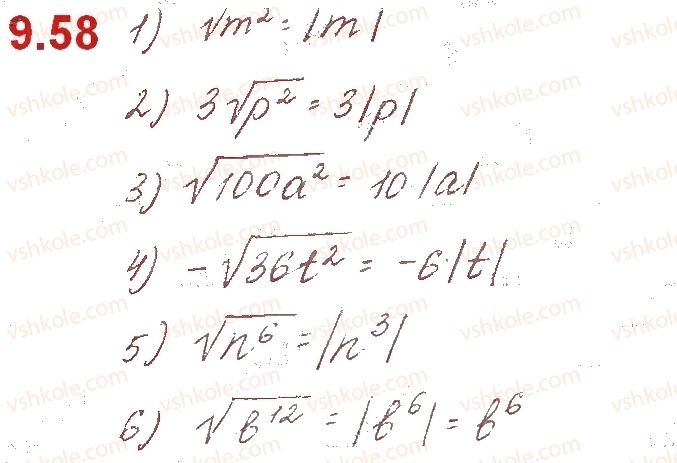 9.58 1) √m² = |m|
2) 3√p² = 3|p|
3) √100a² = 10|a|
4) -√36t² = -6|t|
5) √n⁶ = |n³|
6) √b¹² = |b⁶| = b⁶
vshkole.com